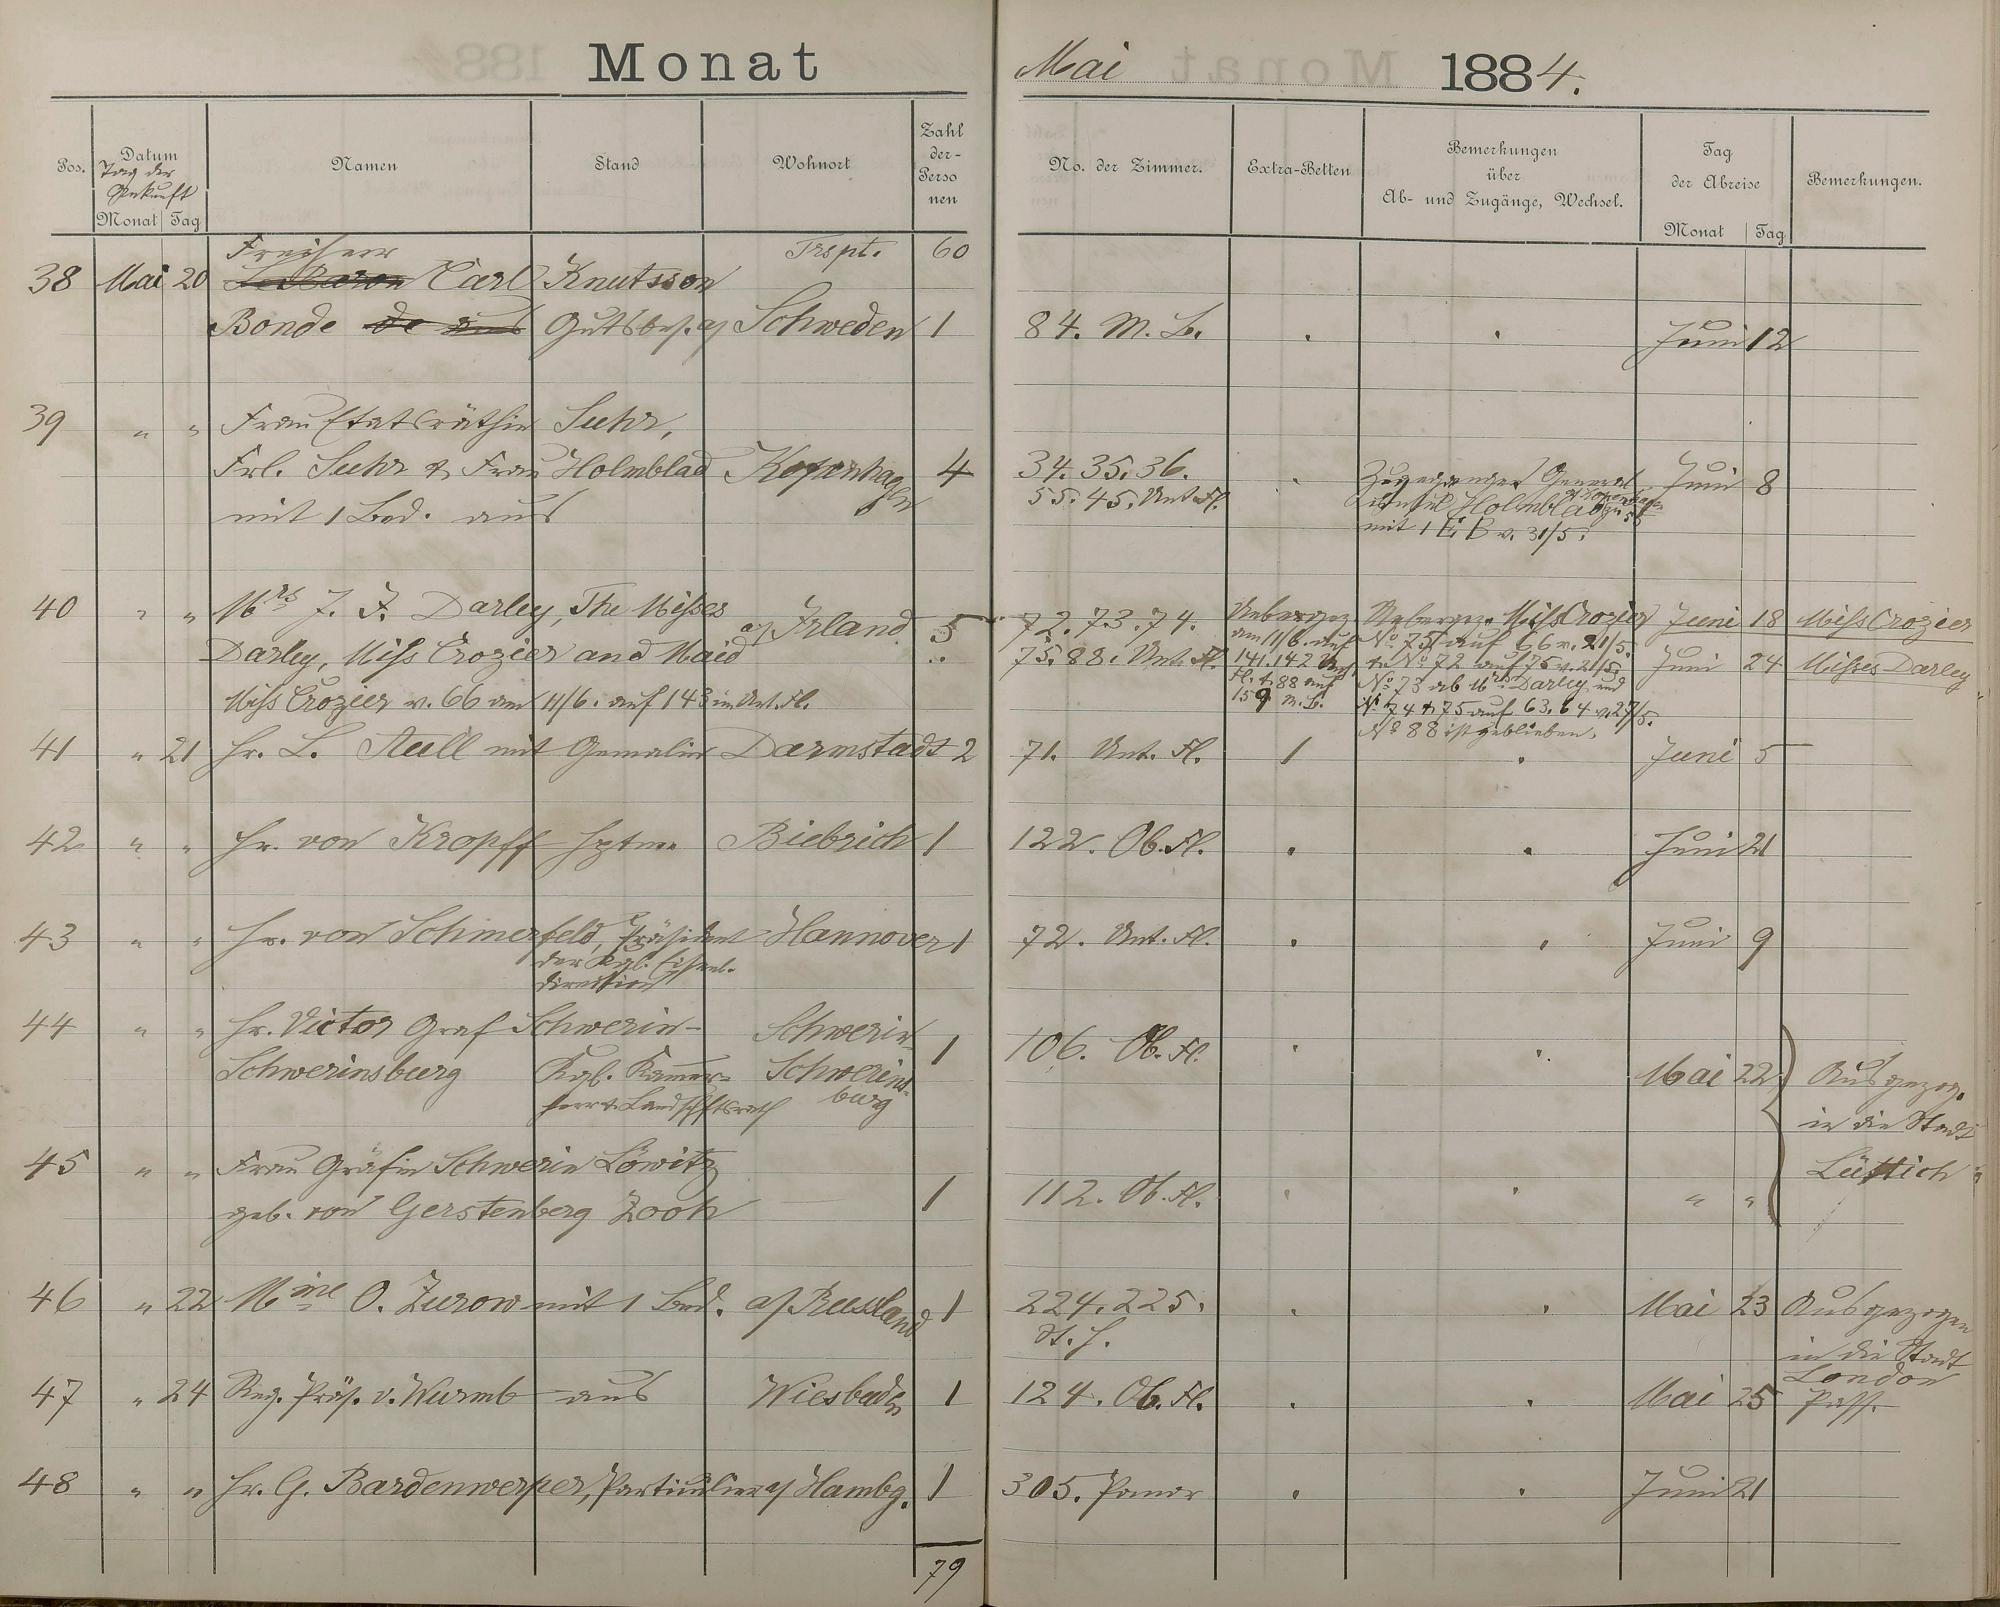 Monat Mai 1884.
Pos. Datum Tag der Ankunft Monat Tag Namen Stand Wohnort Zahl der Perso nen No. der Zimmer. Extra-Betten Bemerkungen über Ab- und Zugänge, Wechsel. Tag der Abreise Monat Tag Bemerkungen.
Freiherr Trspt. 60
38 Mai 20 Le Baron Carl Knutsson
Bonde de aus Gutsbes. a/ Schweden 1 84. M. B. Juni 12
39 " " Frau Etatsräthin Suhr,
Frl. Suhr & Frau Holmblad Kopenhagen 4 34. 35. 36. Zugegangen General Juni 8
mit 1 Bed. aus 55. 45. Unt. Fl. Consul Holmblad
mit 1 E B v. 31/5.
40 " " Mrs J. F. Darley, The Misses a/ Irland 5 72. 73. 74. Miss Crozier Juni 18 Miss Crozier
Darley, Miss Crozier and Maid 75. 88. Unt. Fl. am 11/6. auf No 75 auf 66 v. 21/5. Juni 24 Misses Darley
141. 142 Unt. Fl. & 88 auf 159 M. B. & No 72 auf 75 v. 21/5.
No 73 ab Mrs Darley und
Miss Crozier v. 66 am 11/6. auf 143 in Unt. Fl. No 74 & 75 auf 63. 64 v. 27/5.
No 88 ist geblieben.
41 " 21 Hr. L. Stull mit Gemalin Darmstadt 2 71. Unt. Fl. 1 Juni 5
42 " " Hr. von Kropff Hptm Biebrich 1 122. Ob. Fl. Juni 21
43 " " Hr. von Schmerfeld, Präsident Hannover 1 72. Unt. Fl. Juni 9
der Kgl. Eisenb.
direction
44 " " Hr. Victor Graf Schwerin- Schwerin- 1 106. Ob. Fl.
Schwerinsburg Kgl. Kammer- Schwerins- Mai 22 Ausgezog.
herr & Landschftsrath burg in die Stadt
45 " " Frau Gräfin Schwerin Löwitz Lüttich
geb. von Gerstenberg Zooh 1 112. Ob. Fl. " "
46 " 22 Mme O. Zurow mit 1 Bed. a/ Russland 1 224. 225. Mai 23 Ausgezogen
St. H. in die Stadt
London
47 " 24 Reg. Präs. v. Wurmb aus Wiesbaden 1 124. Ob. Fl. Mai 25 Pass.
48 " " Hr. G. Bardenwerper, Particulier a/ Hambg. 1 305. Panor Juni 21
79